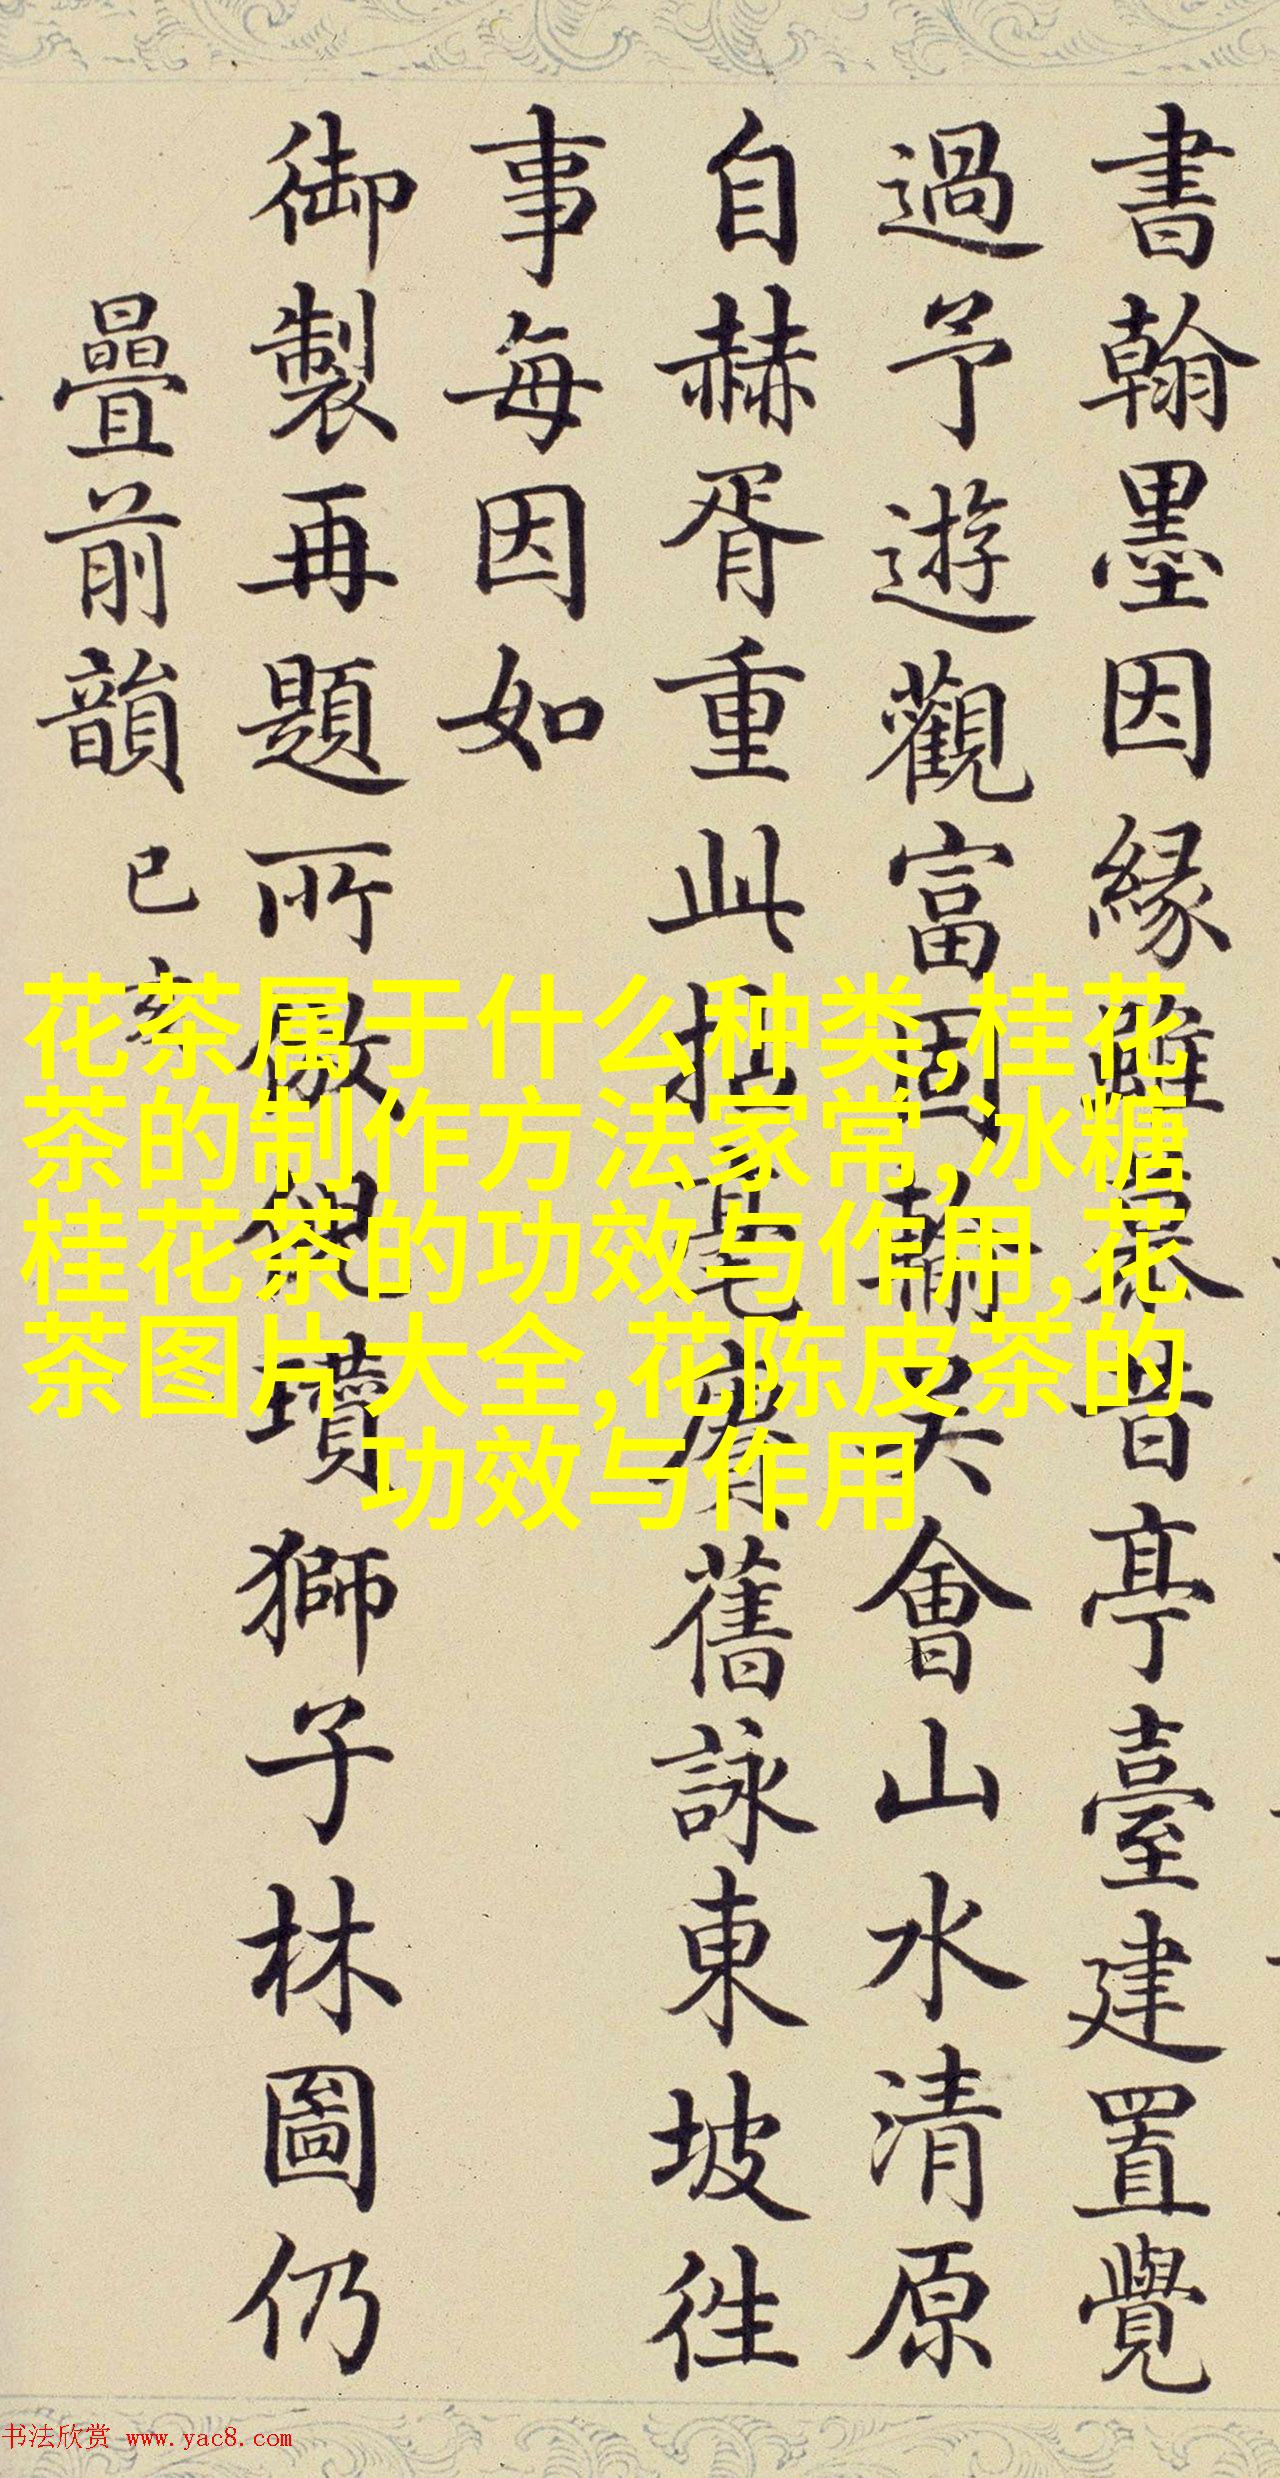 書翰墨因緣雖昔亭臺建置覺
過予遊觀富固輸吳會山水清原
自赫胥重此拈毫賡舊詠東坡徃
事每因如
御製再題所倣倪瓚獅子林圖仍
疊前韻 已亥
花茶属于什么种类,桂花
茶的制作方法家常,冰糖
桂花茶的功效与作用,花
茶图片大全,花陈皮茶的
功效与作用
书法欣赏 www.yac8.com